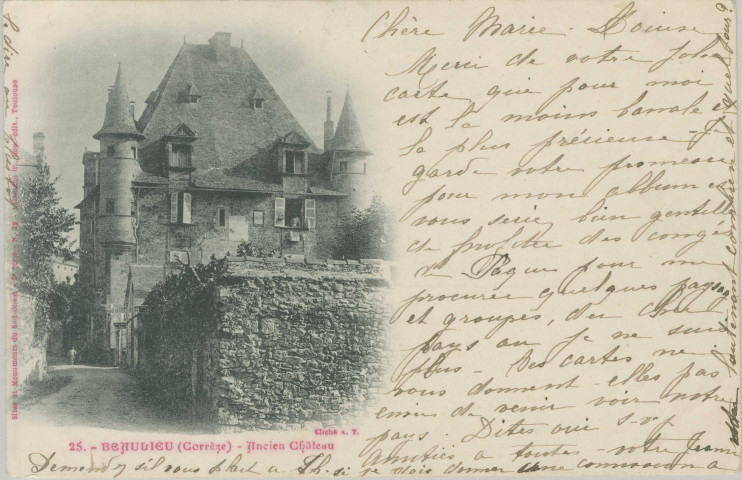 Chère Marie-Louise
Merci de votre jolie
carte que pour moi
est la moins banale et
la plus précieuse - Je
garde votre promesse
pour mon album et
vous serie bien gentille
de profiter des congés
de Pâques pour me
procurer quelques paysages
et groupes, du cher
pays ou je ne suis
plus - Ses cartes ne
vous donnent-elles pas
envie de venir voir notre
pays. Dites oui s.v.p
Amitiés a toutes - votre Jeanne
Demandez s'il vous plait a Th. si je dois donner une commission a
maintenant
25. - BEAULIEU (Corrèze) - Ancien Château
Cliché A. T.
Sites et Monuments du
Toulouse